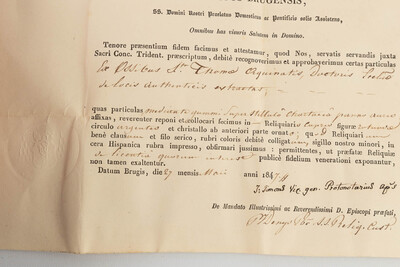 BRUGENSIS,
SS. Domini Nostri Praelatus Domesticus ac Pontificio solio Assistens,
Omnibus has visuris Salutem in Domino.
Tenore praesentium fidem facimus et attestamur, quod Nos, servatis servandis juxta
Sacri Conc. Trident. praescriptum, debitè recognoverimus et approbaverimus certas particulas
Ex Ossibus Sti Thomae Aquinatis, Doctoris Eccliae
de Locis Authenticis extractas,
quas particulas mediante gummi super stellulâ
affixas, reverenter reponi et collocari fecimus in Reliquiario cupreo figurae rotundae
circulo argenteo et christallo ab anteriori parte ornato, quod Reliquiari
benè clausum et filo serico, rubri coloris debitè colligatum, sigillo nostro minori, in
cera Hispanica rubra impresso, obfirmari jussimus: permittentes, ut praefatae Reliquiae
de licentia quorum interest publicè fidelium venerationi exponantur,
non tamen exaltentur.
Datum Brugis, die 27 mensis Maii anni 1847
Simons Vic. gen. Protonotarius Aplis
De Mandato Illustrissimi ac Reverendissimi D. Episcopi praefati,
SS. Reliq. Cust.